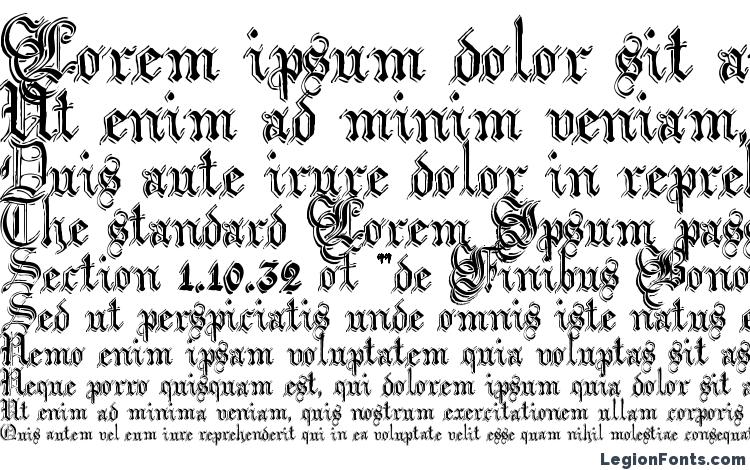 Lorem ipsum dolor sit a
Ut enim ad minim veniam,
Duis aute irure dolor in repre
The standard Lorem Ipsum pass
Section 1.10.32 ot "de Finibus Bono
Sed ut perspiciatis unde omnis iste natus e
Nemo enim ipsam voluptatem quia voluptas sit as
Neque porro quisquam est, qui dolorem ipsum quia dolor sit a
Ut enim ad minima veniam, quis nostrum exercitationem ullam corporis
Quis autem vel eum iure reprehenderit qui in ea voluptate velit esse quam nihil molestiae consequat
LegionFonts.com